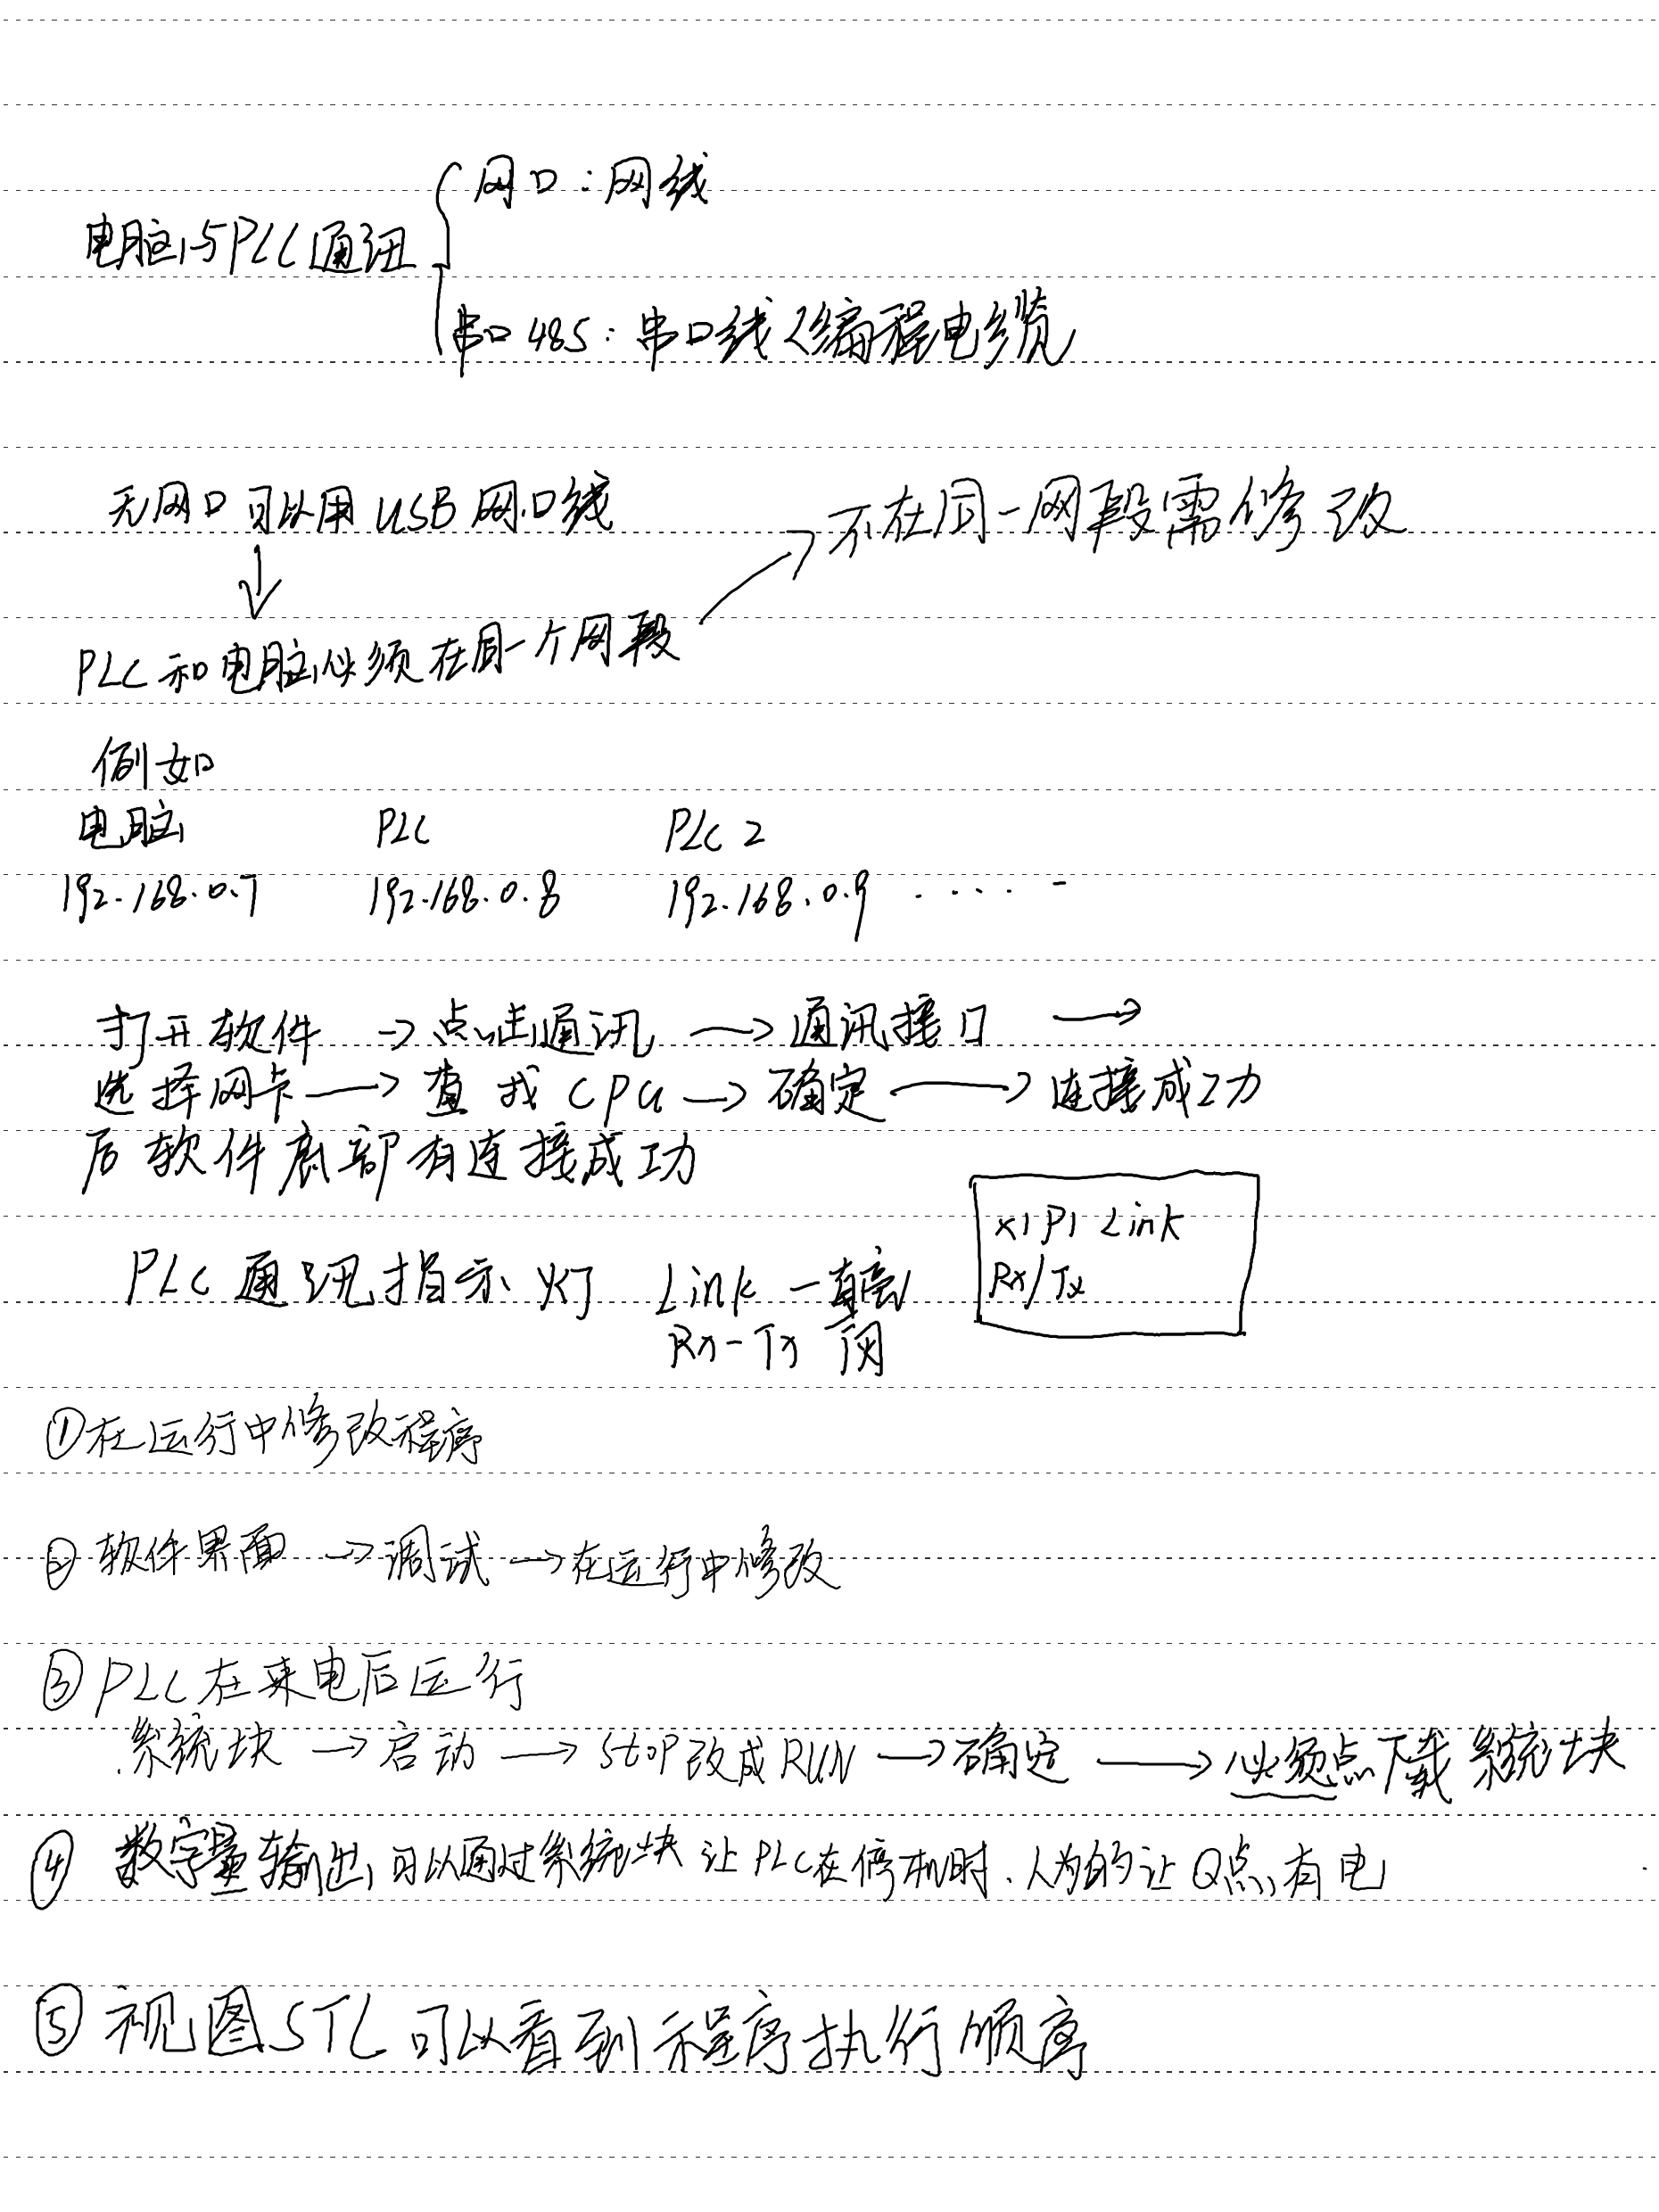 网口：网线
电脑与PLC通讯
串口485：串口线<编程电缆
无网口可以用USB网口线
不在同一网段需修改
PLC和电脑必须在同一个网段
例如
电脑 PLC PLC 2
192.168.0.7 192.168.0.8 192.168.0.9 ......
打开软件 → 点击通讯 → 通讯接口 →
选择网卡 → 查找CPU → 确定 → 连接成功
后软件底部有连接成功
X1P1 Link
Rx/Tx
PLC通讯指示灯 Link 一直亮
Rx-Tx 闪
①在运行中修改程序
②软件界面 → 调试 → 在运行中修改
③PLC在来电后运行
系统块 → 启动 → STOP改成RUN → 确定 → 必须点下载系统块
④ 数字量输出,可以通过系统块让PLC在停机时.人为的让Q点有电
⑤视图STL可以看到程序执行顺序